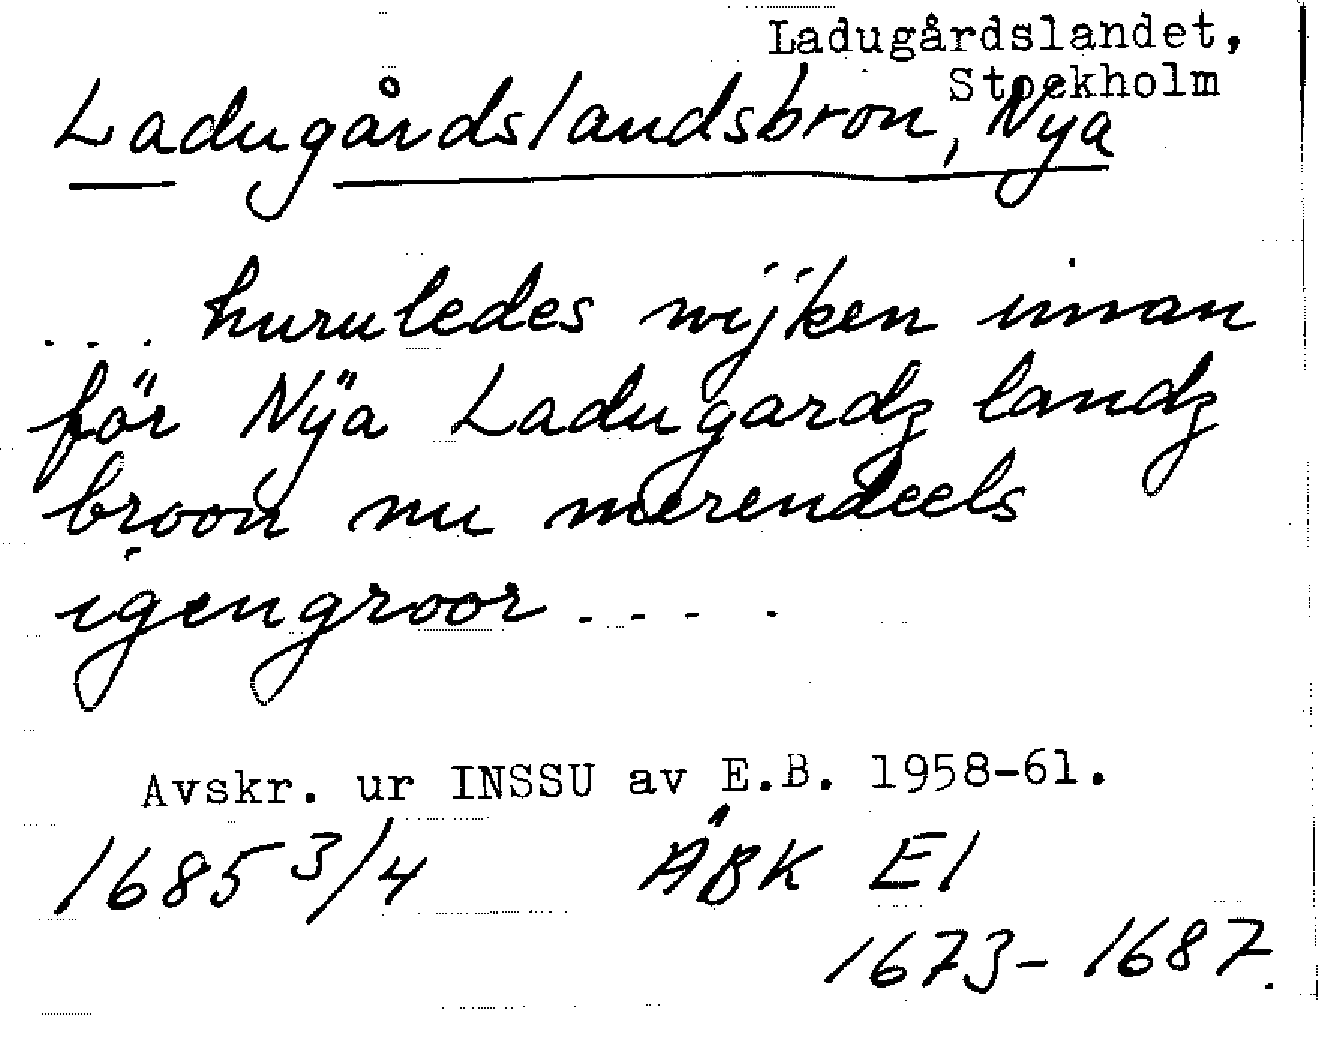 Ladugårdslandet,
Stockholm
Ladugårdslandsbron, Nya
... huruledes wijken innan
för Nÿa Ladugardz landz
broon nu merendeels
igengroor ....
Avskr. ur INSSU av E.B. 1958-61.
1685 3/4 ÄBK E1
1673-1687.